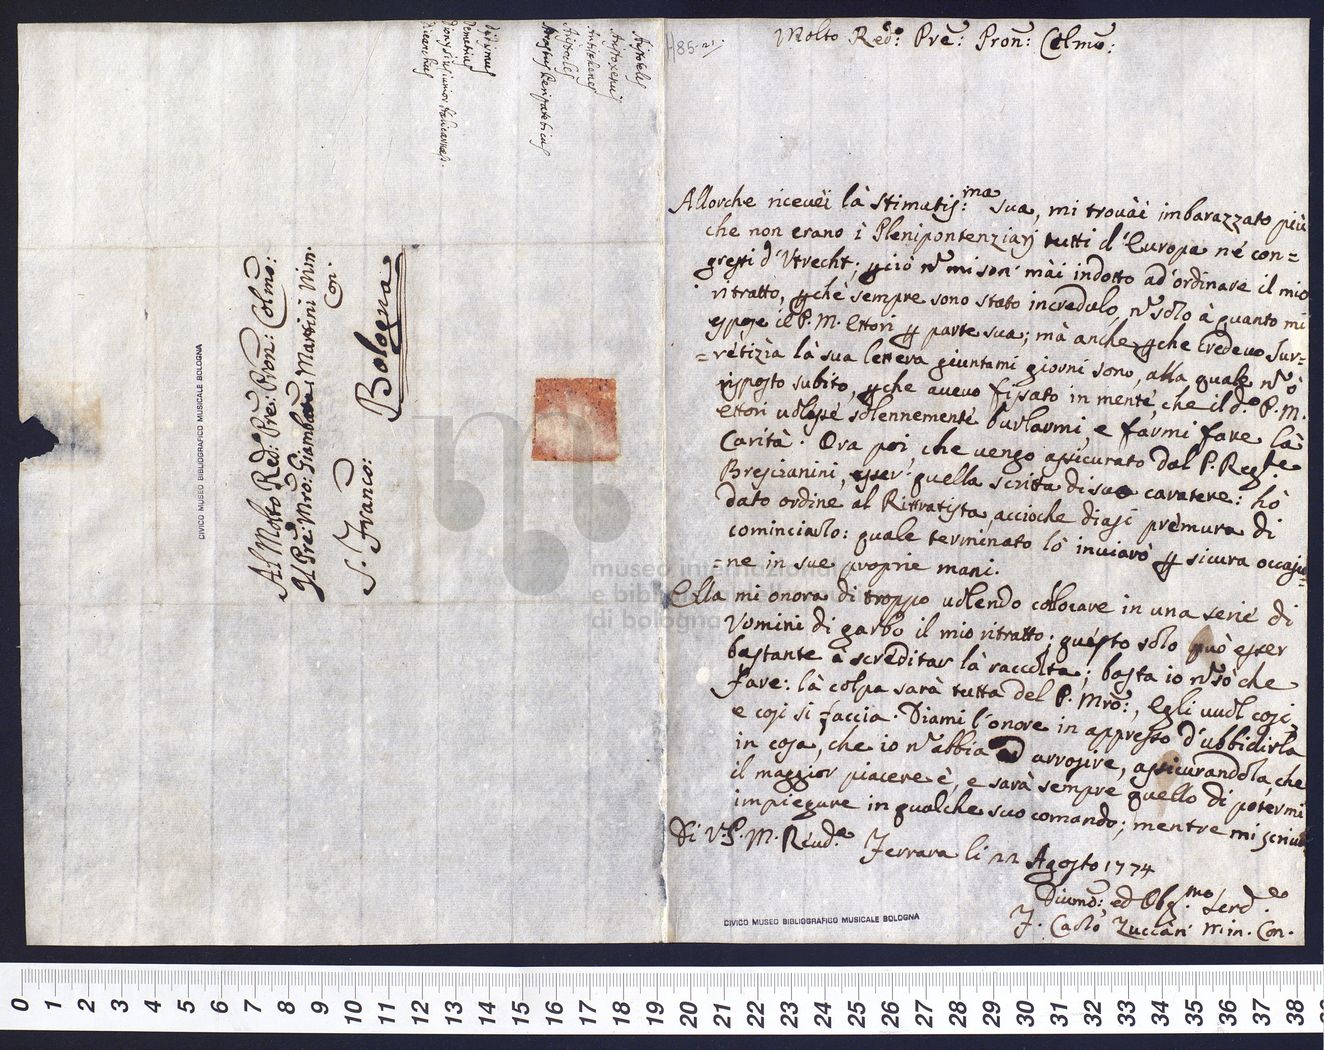 Molto Redo: Pre: Pron: Colmo:
Allorche ricevei là stimatis:ma sua, mi trovài imbarazzato più
che non erano i Plenipontenziarj tutti d'Europa ne con=
gressi d'Utrecht; ꝑciò nº mi son' mài indotto ad'ordinare il mio
ritratto, ꝑchè sempre sono stato incredulo, nº solo à quanto mi
espose il P. M. Ettori ꝑ parte sua; mà anche ꝑche credevo sur=
=retizia là sua lettera giuntami giorni sono, alla quale nº ò
risposto subito, ꝑche avevo fissato in mente, che il do P. M.
Ettori volesse solennemente burlarmi, e farmi fare là
Carità. Ora poi, che vengo assicurato dal P. Reg:te
Brescianini, esser' quella scritta di suo caratere: hò
dato ordine al Ritratista, acciòche diasi premura di
cominciarlo: quale terminato lo inviarò ꝑ sicura occasio=
=ne in sue proprie mani.
Ella mi onora di troppo volendo collocare in una serie di
Uomini di garbo il mio ritratto; questo solo può esser
bastante à screditar là raccolta; basta io nº sò che
fare: là colpa sarà tutta del P. Mro:, Egli vuol così,
e così si faccia. Diami l'onore in appresso d'ubbidirla
in cosa, che io nº abbia d'arrosire, assicurandola, che
il maggior piacere è, e sarà sempre quello di potermi
impiegare in qualche suo comando; mentre mi
Di V. P. M. Revd:a
Ferrara li 22 Agosto 1774
Divmo: ed Obg:mo Serd:e
F. Carlo Zuccari Min. Con.
CIVICO MUSEO BIBLIOGRAFICO MUSICALE BOLOGNA
Al Molto Redo: Pre: Pron: Colmo:
Il Pre: Mro: Giambatta Martini Min.
Con.
S. Franco:
Bologna
CIVICO MUSEO BIBLIOGRAFICO MUSICALE BOLOGNA
Aristotele
Aristoxenus
Antisthenes
Aristocles
Peripateticus
Didimus
Demetrius
Dionysius iunior
Dicearchus
museo internazionale
e biblioteca della musica
di bologna
0 1 2 3 4 5 6 7 8 9 10 11 12 13 14 15 16 17 18 19 20 21 22 23 24 25 26 27 28 29 30 31 32 33 34 35 36 37 38